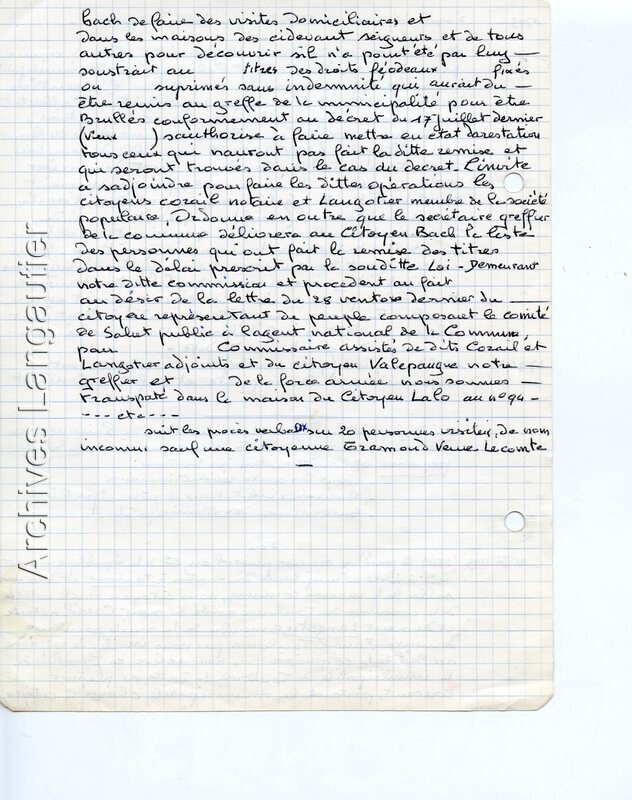 bach de faire des visites domiciliaires et
dans les maisons des cidevant seigneurs et de tous
autres pour découvrir s'il n'a point été par luy —
soustrait au titres des droits féodeaux fixés
ou suprimés sans indemnité qui auroit du —
être remis au greffe de la municipalité pour être
Brullés conformement au décret du 17 juillet dernier
(vieux ) sauthorise à faire mettre en état darestation
tous ceux qui nauront pas fait la ditte remise et
qui seront trouvés dans le cas du decret. L'invite
à sadjoindre pour faire les dittes opérations les
citoyens cozail notaire et Langotier membre de la société
populaire. Ordonne en outre que le secrétaire greffier
de la commune délivrera au Citoyen Bach la liste
des personnes qui ont fait la remise des titres
dans le délai prescrit par la sousditte Loi - Demeurant
notre ditte commission et procédent au fait
au désir de la lettre du 28 ventose dernier du —
citoyen représentant du peuple composant le comité
de Salut public à lagent national de la Commune,
pour Commissaire assistés de dits Cozail et
Langotier adjoints et du citoyen Valepaugue notre —
greffier et de la force armée nous sommes —
transpaté dans la maison du Citoyen Lalo au n° 94 -
---- etc ----
suit les procès verbaux sur 20 personnes visitées, de nom
inconnu sauf une citoyenne Tramond Veuve Lecomte
—
Archives Langautier